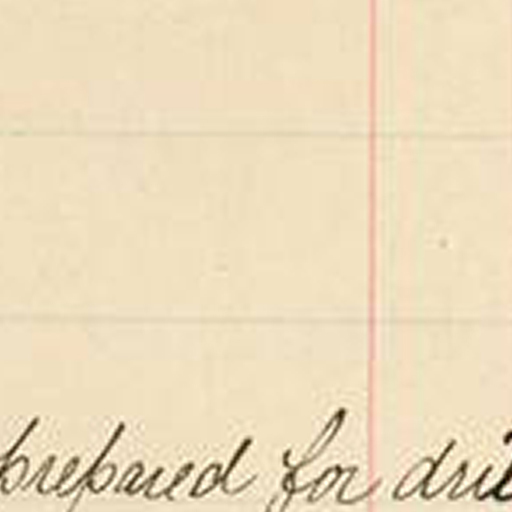 prepared for dri